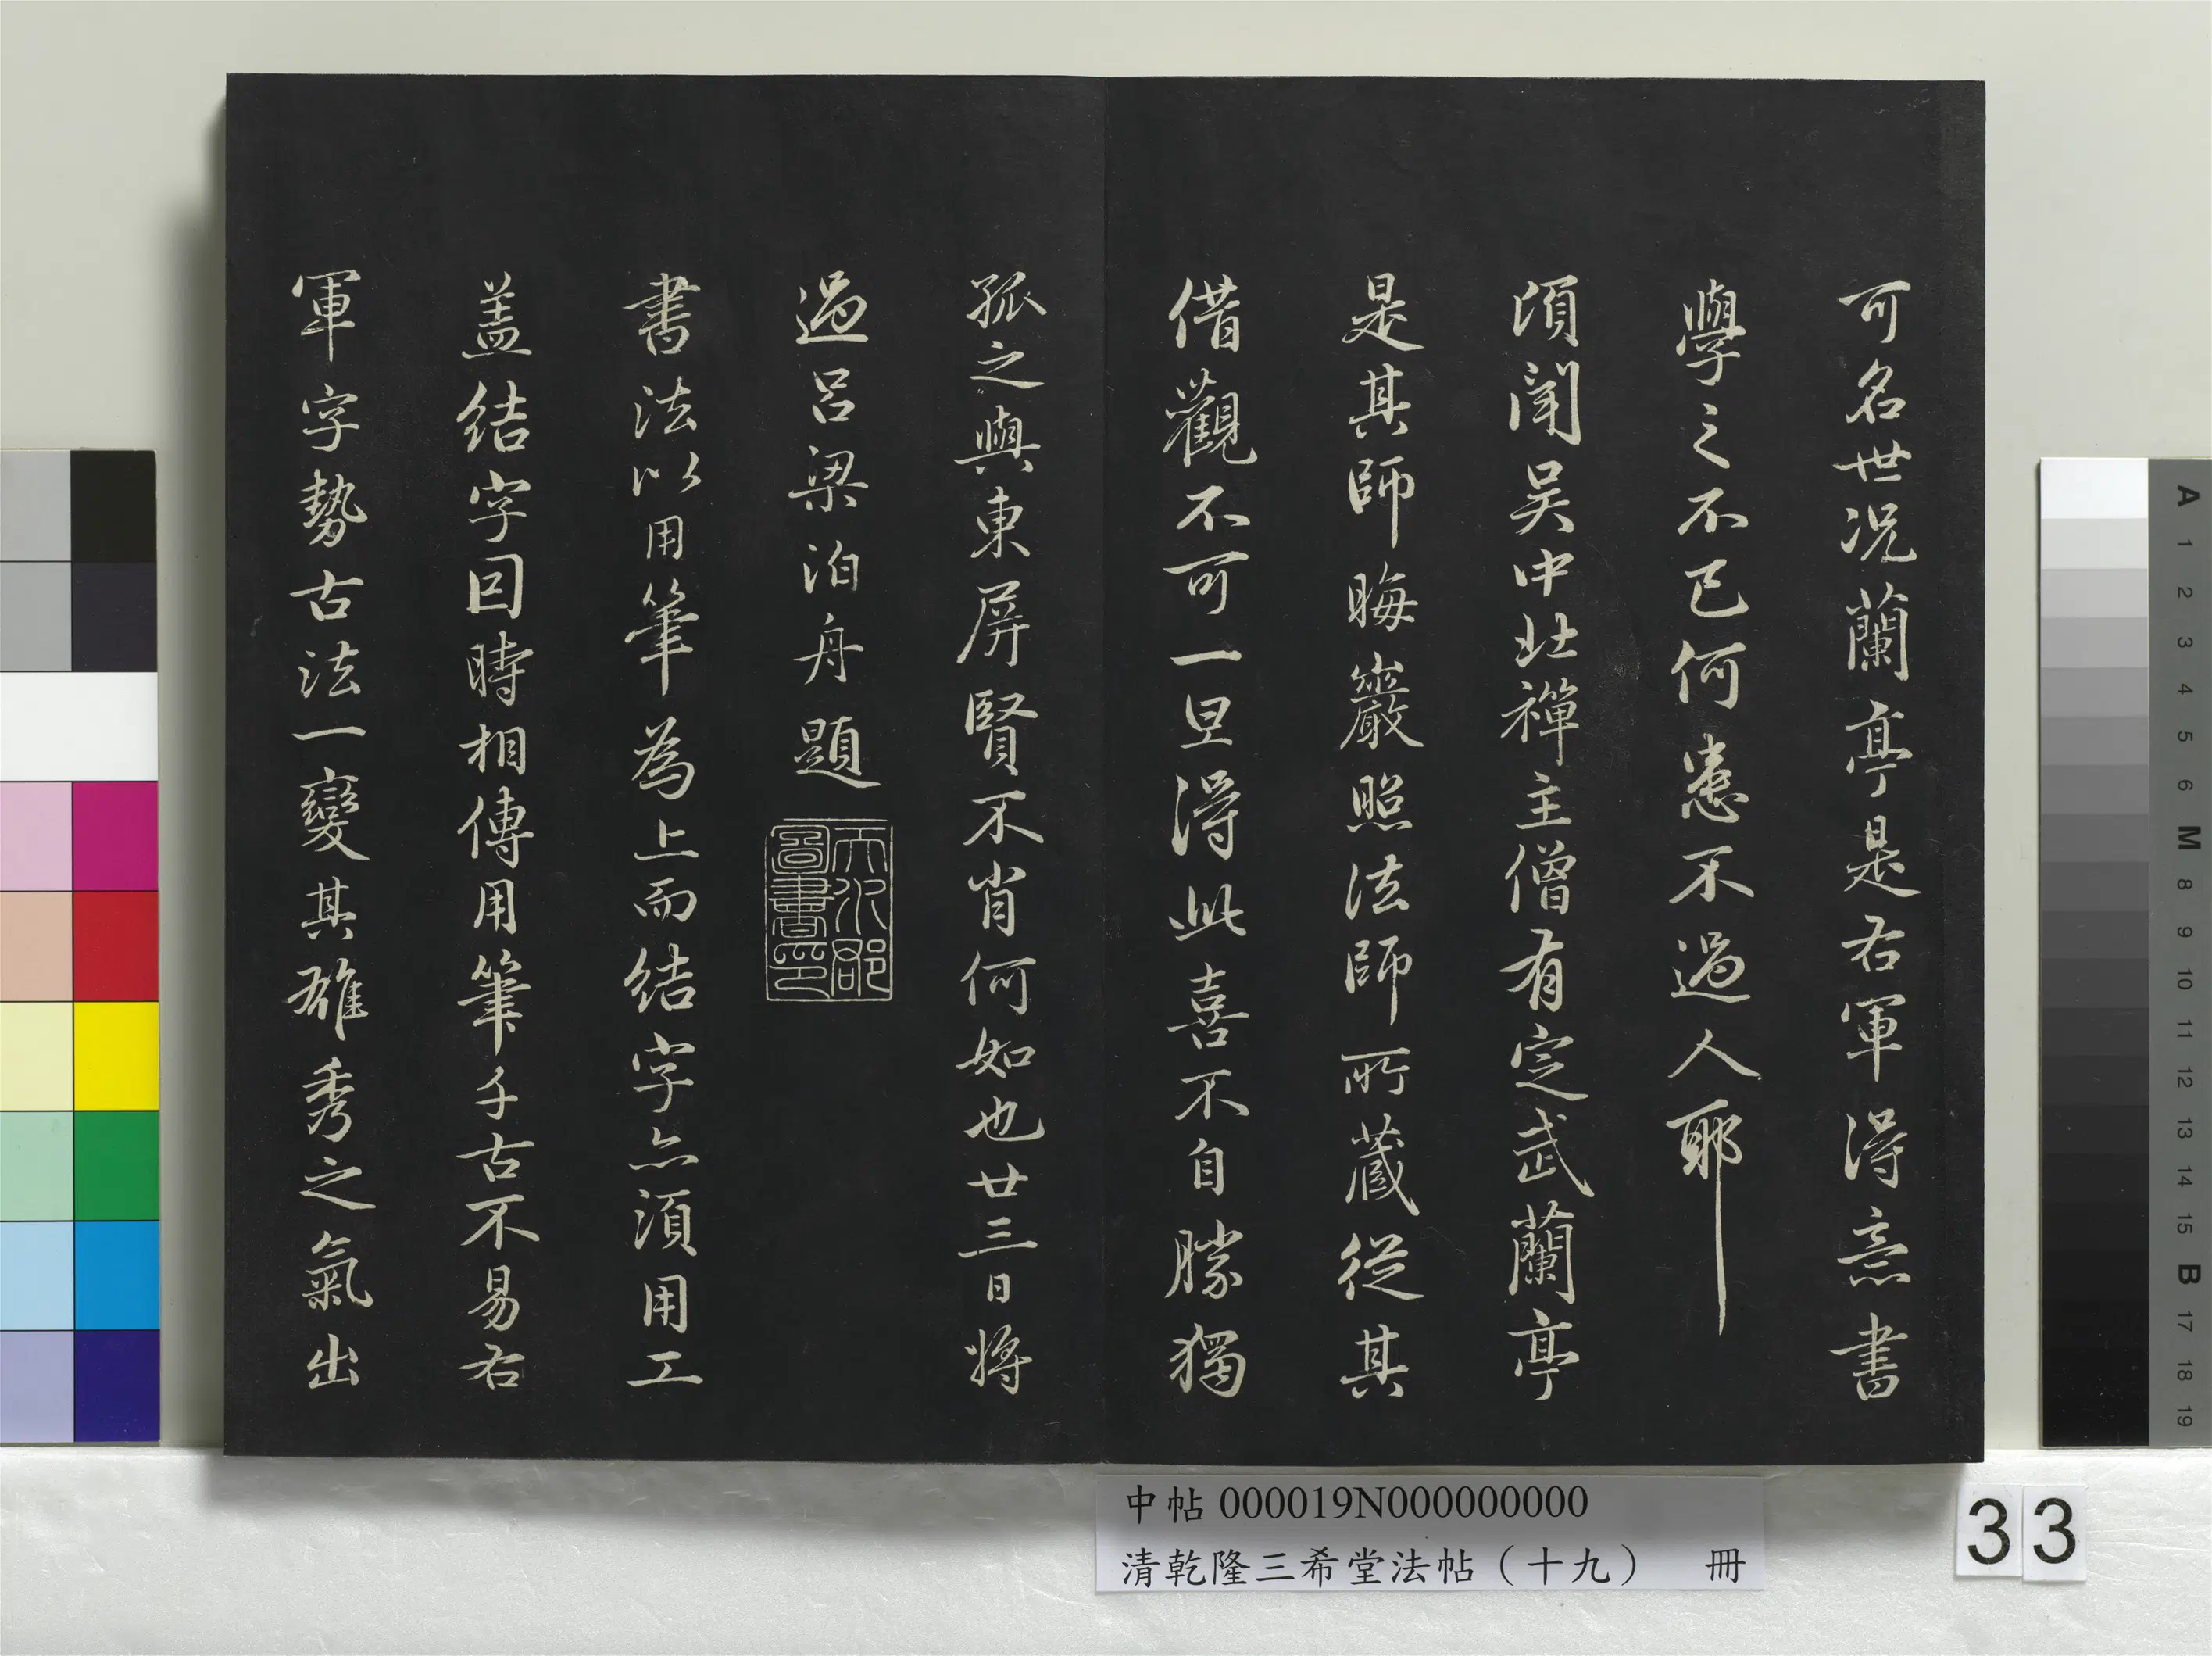 可名世况蘭亭是右軍得意書
學之不已何患不過人耶
頃聞吴中北禪主僧有定武蘭亭
是其師晦巖照法師所藏從其
借觀不可一旦得此喜不自勝獨
孤之與東屏賢不肖何如也廿三日將
過呂梁泊舟題
天水郡圖書印
書法以用筆為上而結字亦須用工
盖結字因時相傳用筆千古不易右
軍字勢古法一變其雄秀之氣出
中帖 000019N000000000
清乾隆三希堂法帖（十九） 冊
33
A 1 2 3 4 5 6 M 8 9 10 11 12 13 14 15 B 17 18 19